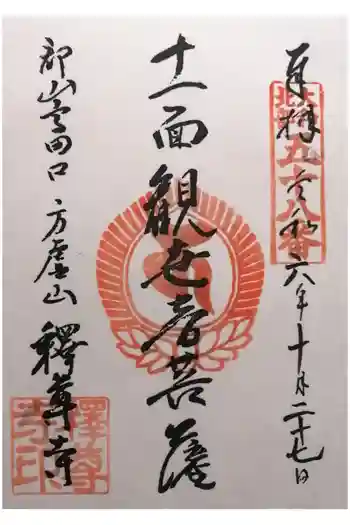 奉拝 令和六年十月二十七日
五十八番
十一面観世音菩薩
郡山高田口 方廣山 釋尊寺
釋尊寺印